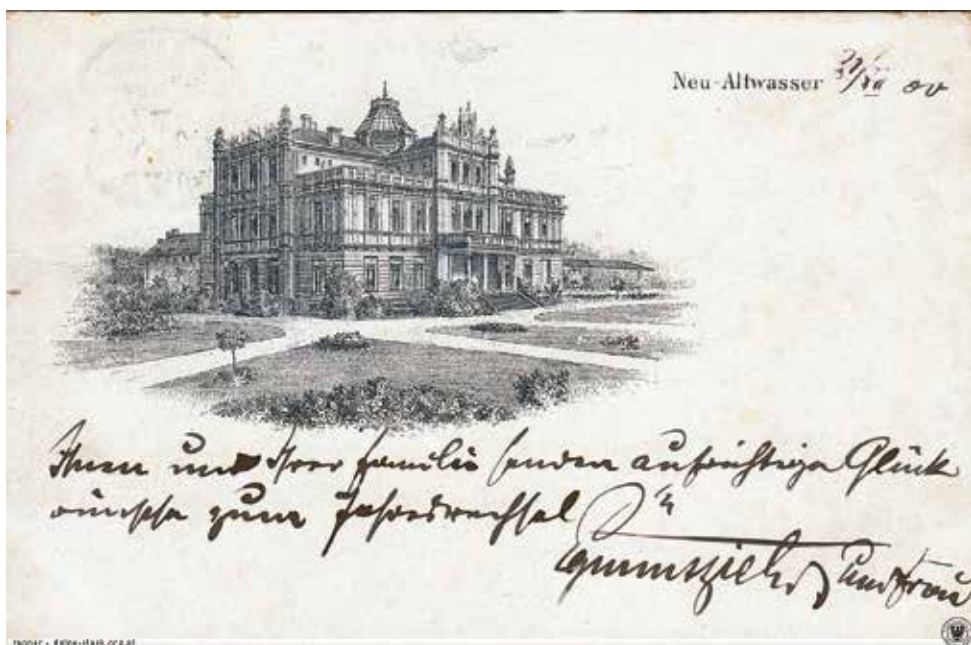 Neu-Altwasser 31/XII 00
Ihnen und Ihrer Familie senden aufrichtige Glück
wünsche zum Jahreswechsel
und Frau